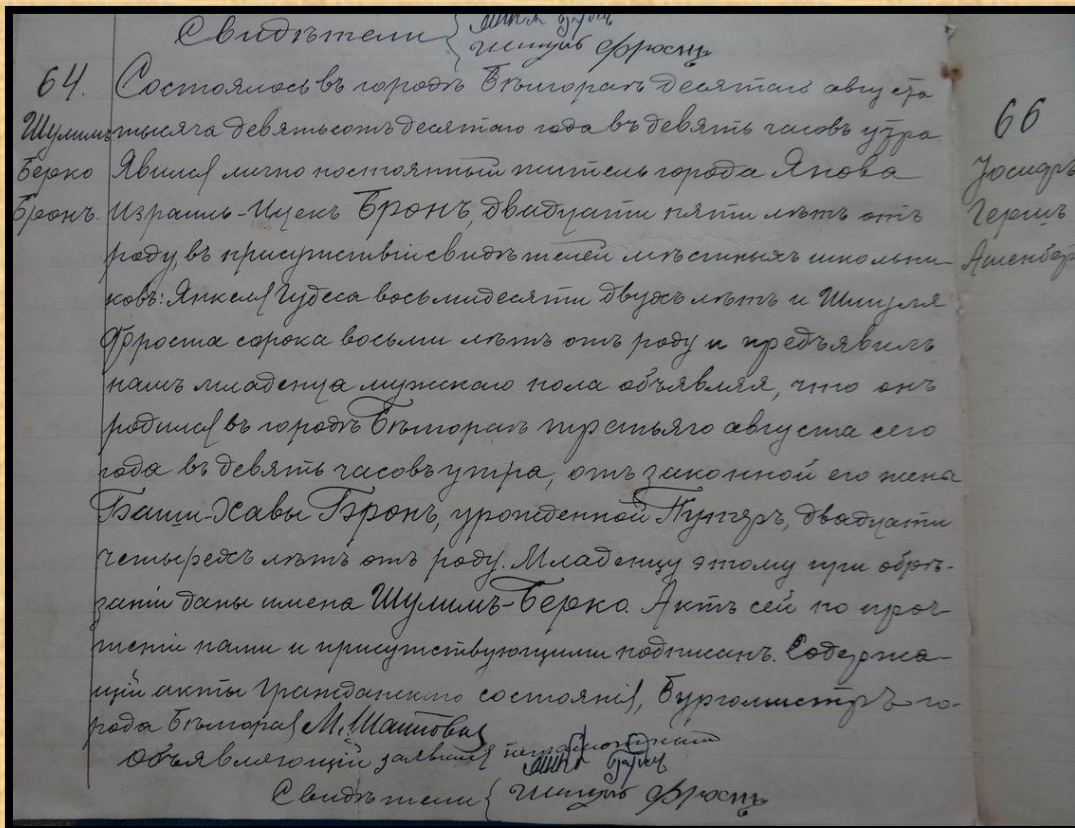 Свидѣтели { Шмуль Фростъ
64. Состоялось въ городѣ Бѣлгораѣ десятаго августа
Шулимъ тысяча девятьсотъ десятаго года въ девять часовъ утра
Берко Явился лично постоянный житель города Янова
Бронъ. Израиль-Ицекъ Бронъ, двадцати пяти лѣтъ отъ
роду, въ присутствіи свидѣтелей мѣстныхъ школьни-
ковъ: Янкеля Гудеса восьмидесяти двухъ лѣтъ и Шмуля
Фроста сорока восьми лѣтъ отъ роду и предъявилъ
намъ младенца мужскаго пола объявляя, что онъ
родился въ городѣ Бѣлгораѣ третьяго августа сего
года въ девять часовъ утра, отъ законной его жены
Баши-Хавы Бронъ, урожденной двадцати
четырехъ лѣтъ отъ роду. Младенцу этому при обрѣ-
заніи даны имена Шулимъ-Берко. Актъ сей по проч-
теніи нами и присутствующими подписанъ. Содержа-
щій акты гражданскаго состоянія, Бургомистръ го-
рода Бѣлгорая
Объявляющій заявился неграмотнымъ
Свидѣтели { Шмуль Фростъ
66
Іосифъ
Гершъ